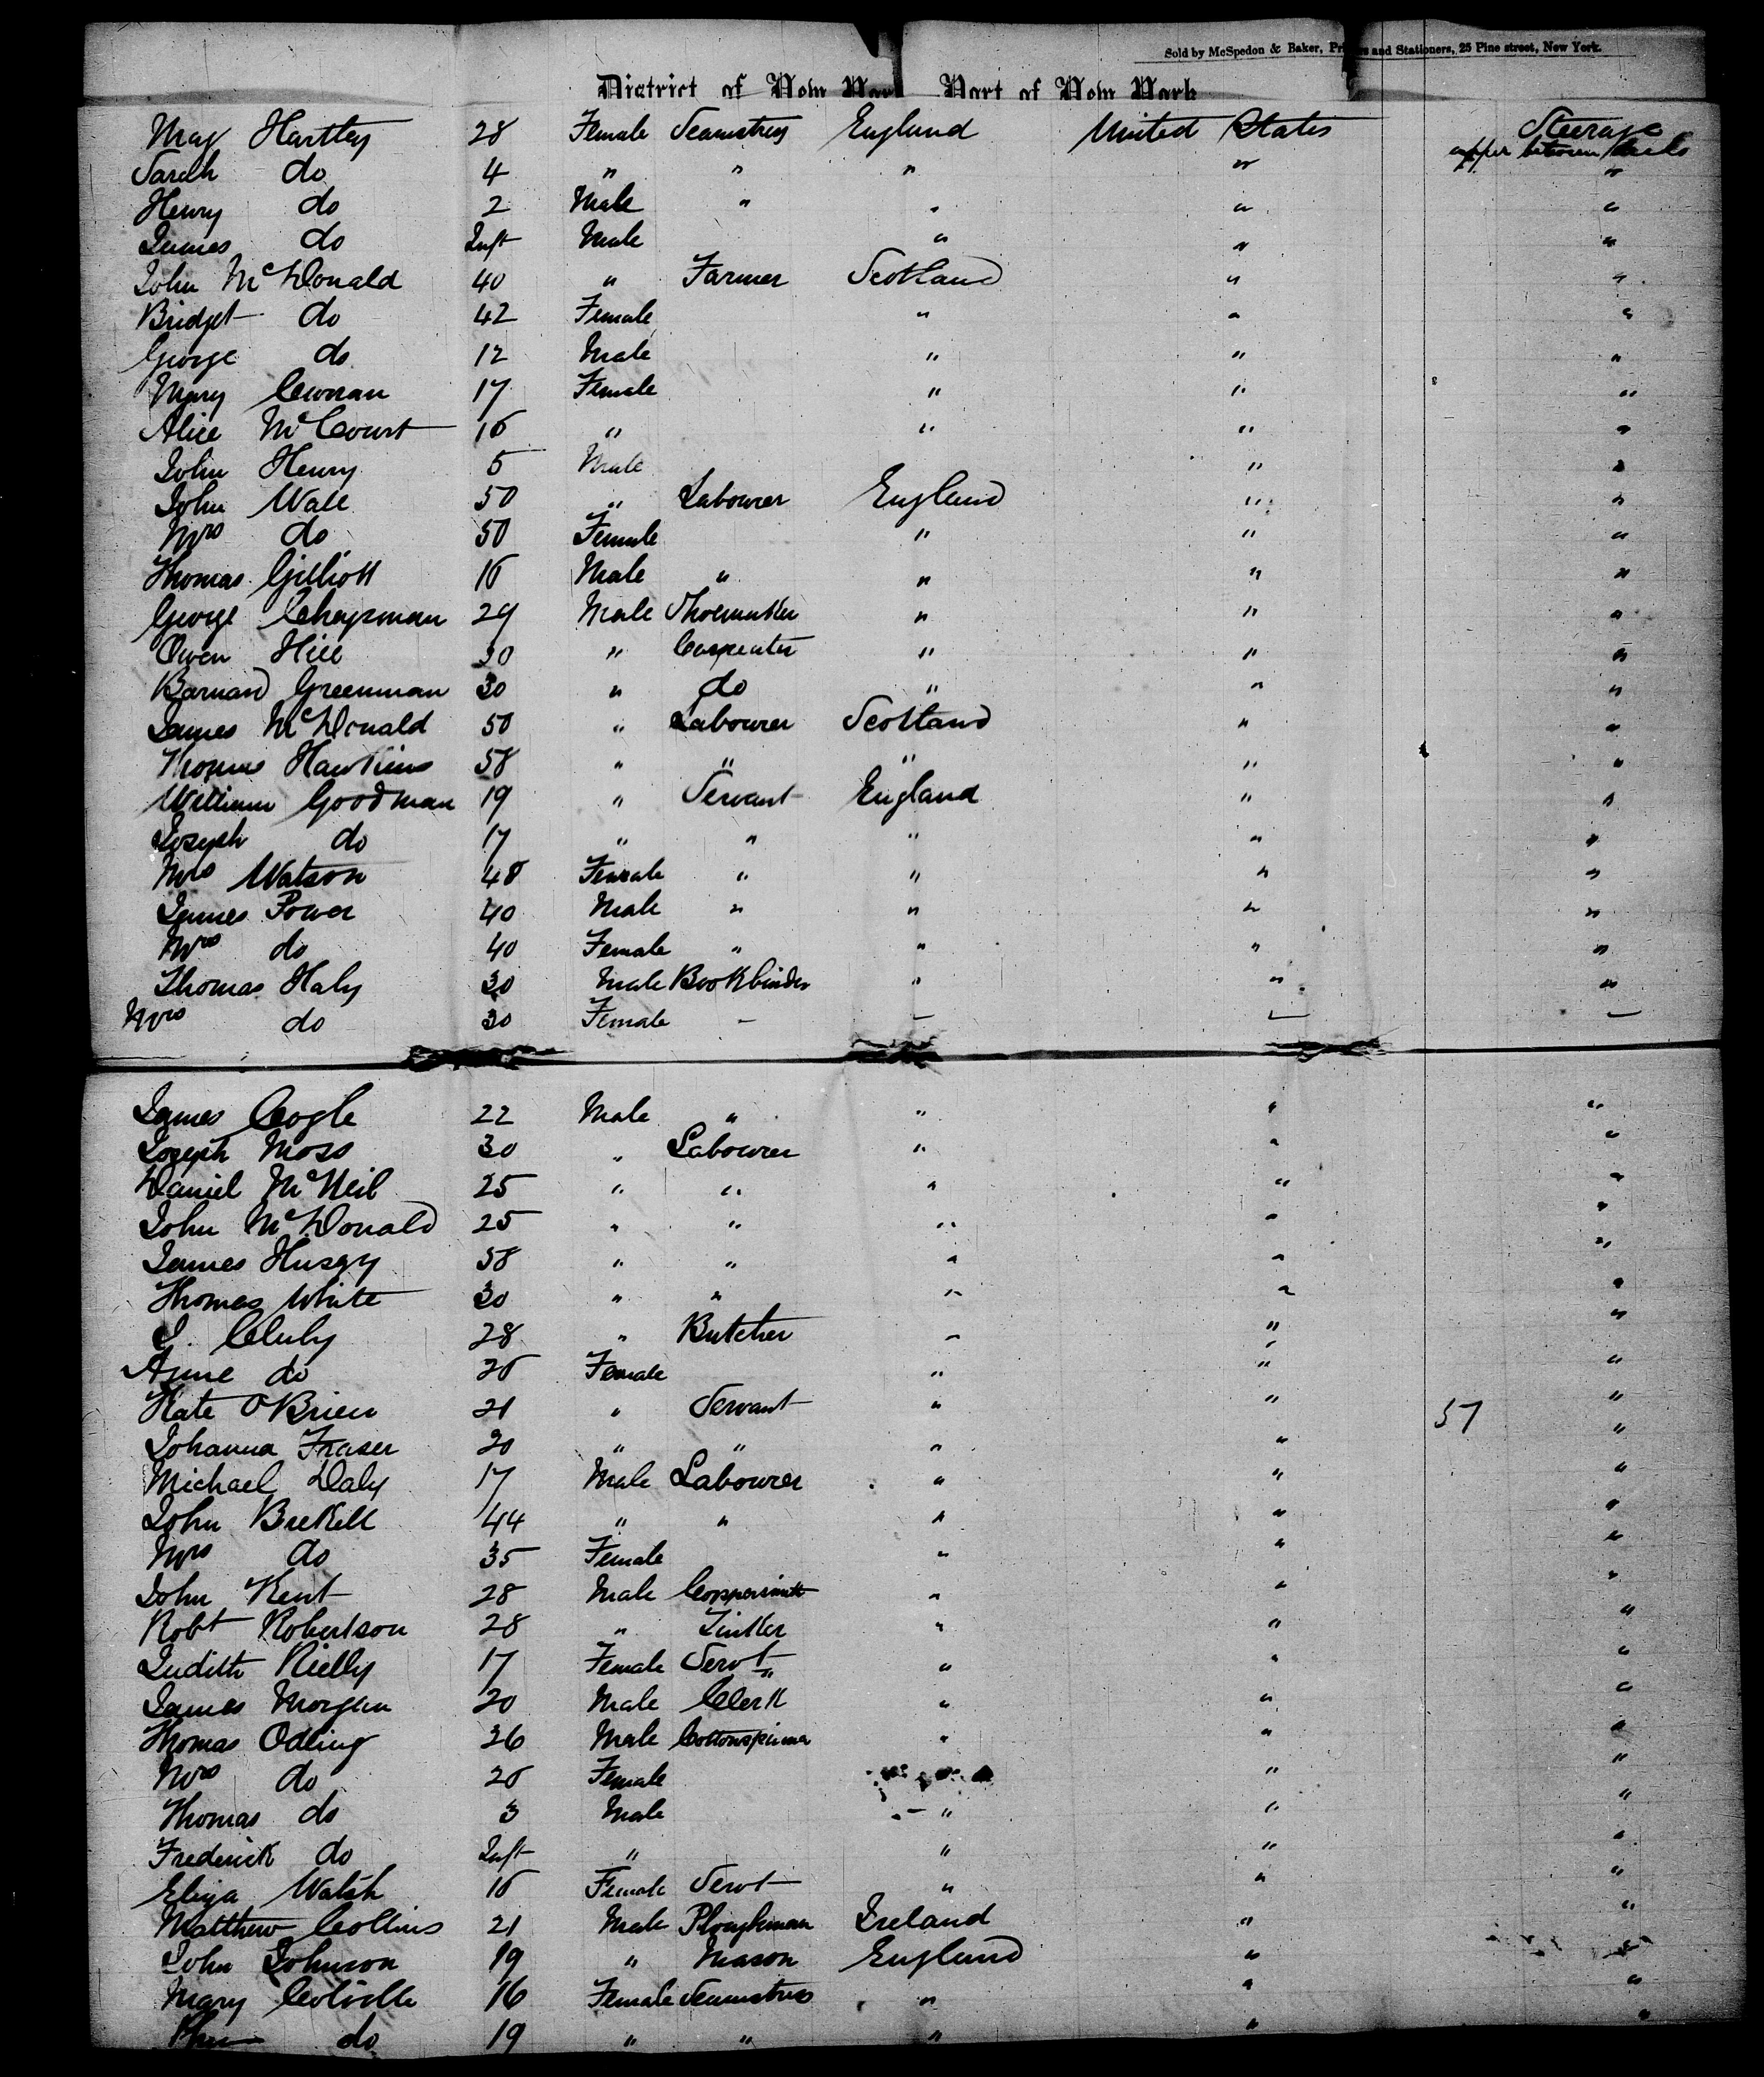 Sold by McSpedon & Baker, Printers and Stationers, 25 Pine street, New York.
District of New York Port of New York
May Hartley 28 Female Seamstress England United States Steerage
upper between decks
Sarah do 4 " " " " "
Henry do 2 Male " " " "
James do Inft Male " " "
John McDonald 40 " Farmer Scotland " "
Bridget do 42 Female " " "
George do 12 Male " " "
Mary Conran 17 Female " " "
Alice McCourt 16 " " " "
John Henry 5 Male " "
John Wall 50 " Labourer England " "
Mrs do 50 Female " " "
Thomas Gilliott 16 Male " " " "
George Chapman 29 Male Shoemaker " " "
Owen Hill 30 " Carpenter " " "
Barnard Greenman 30 " do " " "
James McDonald 50 " Labourer Scotland " "
Thomas Hawkins 58 " " " " "
William Goodman 19 " Servant England " "
Joseph do 17 " " " " "
Mrs Watson 48 Female " " " "
James Power 40 Male " " " "
Mrs do 40 Female " " " "
Thomas Haly 30 Male Bookbinder " " "
Mrs do 30 Female - - - -
James Cogle 22 Male " " " "
Joseph Moss 30 " Labourer " " "
Daniel McNeil 25 " " " " "
John McDonald 25 " " " " "
James Husey 58 " " " " "
Thomas White 30 " " " " "
J. Cluly 28 " Butcher " " "
Anne do 26 Female " " "
Kate O'Brien 21 " Servant " " 57 "
Johanna Fraser 20 " " " " "
Michael Daly 17 Male Labourer " " "
John Brekell 44 " " " " "
Mrs do 35 Female " " "
John Kent 28 Male Coppersmith " " "
Robt Robertson 28 " Tinker " " "
Judith Rielly 17 Female Servt " " "
James Morgan 20 Male Clerk " " "
Thomas Odling 26 Male Cottonspinner " " "
Mrs do 26 Female " "
Thomas do 3 Male " " "
Frederick do Inft " " " "
Eliza Walsh 16 Female Servt " " "
Matthew Collins 21 Male Ploughman Ireland " "
John Johnson 19 " Mason England " "
Mary Colville 16 Female Seamstress " " "
do 19 " " " " "